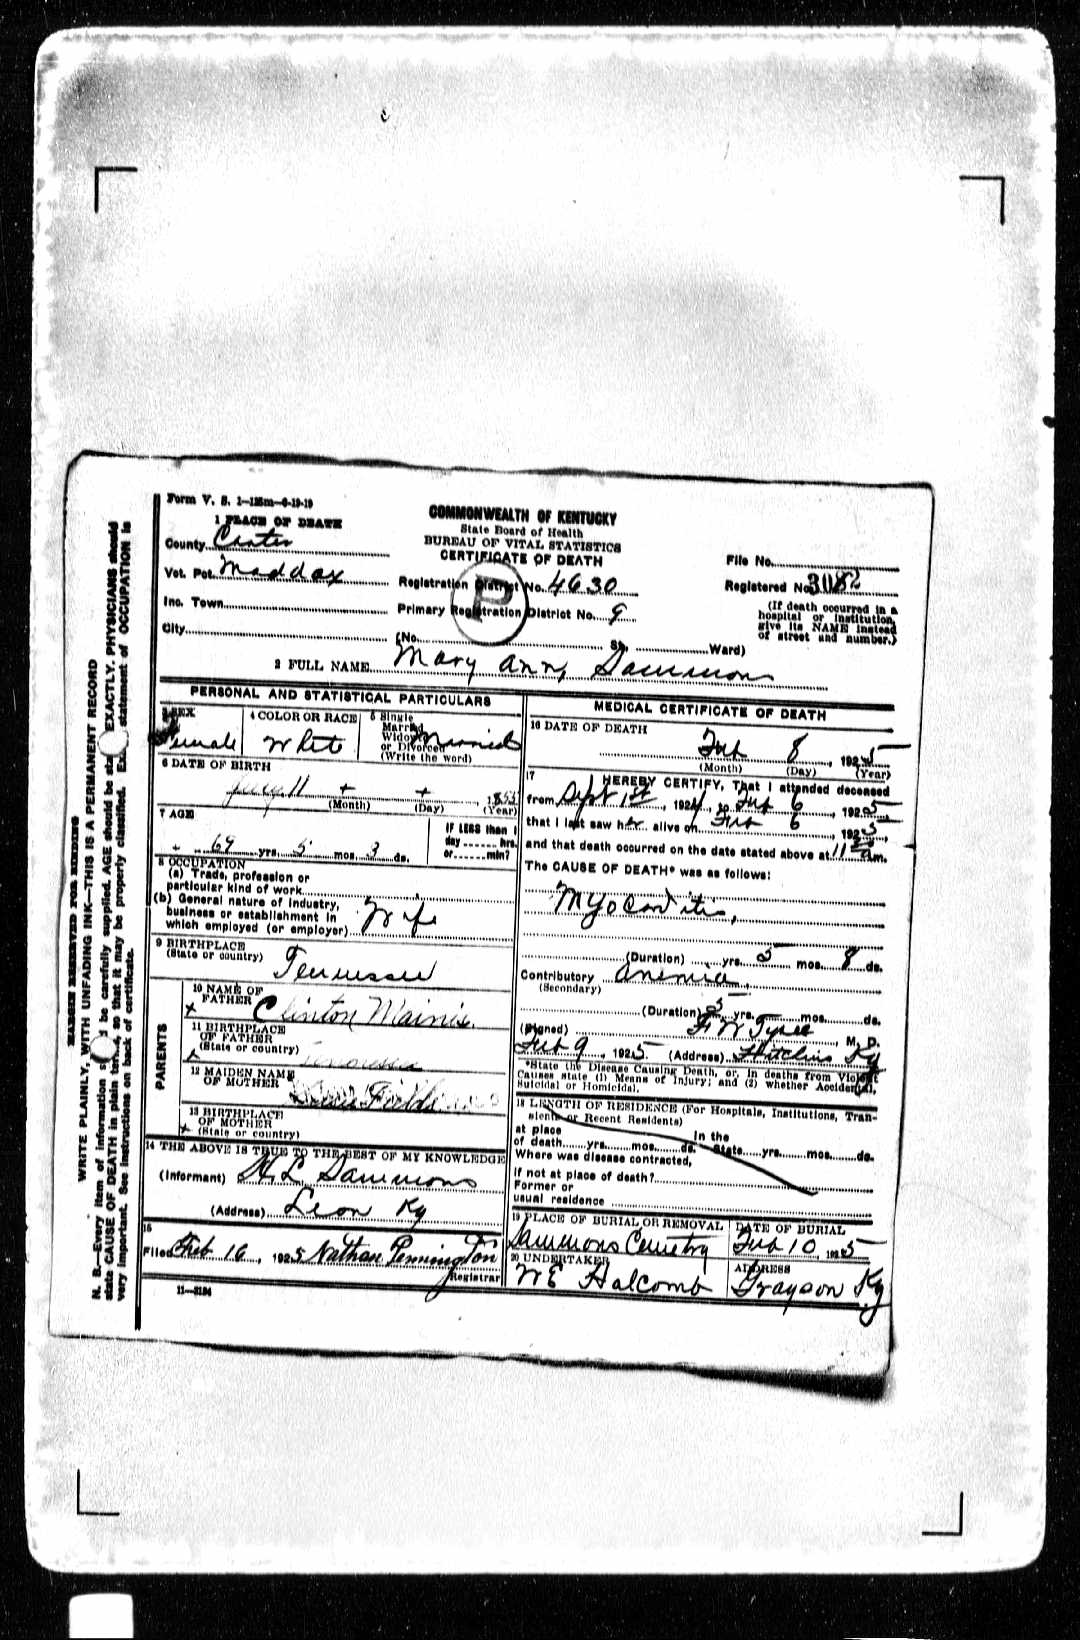 Form V. S. 1—125m—6-19-19
1 PLACE OF DEATH
County Carter
Vot. Pct. Maddox
Inc. Town
City
COMMONWEALTH OF KENTUCKY
State Board of Health
BUREAU OF VITAL STATISTICS
CERTIFICATE OF DEATH
Registration District No. 4630
Primary Registration District No. 9
P
(No. St. Ward)
File No.
Registered No. 3082
(If death occurred in a
hospital or institution,
give its NAME instead
of street and number.)
2 FULL NAME Mary Ann Sammons
PERSONAL AND STATISTICAL PARTICULARS
3 SEX
Female
4 COLOR OR RACE
White
5 Single
Married
Widowed
or Divorced
(Write the word)
Married
6 DATE OF BIRTH
(Month) (Day) (Year)
7 AGE
69 yrs. 5 mos. 3 ds.
IF LESS than 1
day hrs.
or min?
8 OCCUPATION
(a) Trade, profession or
particular kind of work
(b) General nature of industry,
business or establishment in
which employed (or employer)
Wife
9 BIRTHPLACE
(State or country)
Tennessee
PARENTS
10 NAME OF
FATHER
Clinton
11 BIRTHPLACE
OF FATHER
(State or country)
Tennessee
12 MAIDEN NAME
OF MOTHER
Fields
13 BIRTHPLACE
OF MOTHER
(State or country)
14 THE ABOVE IS TRUE TO THE BEST OF MY KNOWLEDGE
(Informant) H.L. Sammons
(Address) Leon Ky
15
Filed Feb 16, 1925 Nathan Pennington
Registrar
11—3184
MEDICAL CERTIFICATE OF DEATH
16 DATE OF DEATH
Feb 8, 1925
(Month) (Day) (Year)
17
I HEREBY CERTIFY, That I attended deceased
from Sept 1st, 1924, to Feb 6, 1925,
that I last saw her alive on Feb 6, 1925,
and that death occurred on the date stated above at 11 am.
The CAUSE OF DEATH* was as follows:
Myocarditis,
(Duration) yrs. 5 mos. 8 ds.
Contributory Anemia,
(Secondary)
(Duration) 5 yrs. mos. ds.
(Signed) M. D.
Feb 9, 1925. (Address) Hitchins Ky
*State the Disease Causing Death, or, in deaths from Violent
Causes state (1) Means of Injury; and (2) whether Accidental,
Suicidal or Homicidal.
18 LENGTH OF RESIDENCE (For Hospitals, Institutions, Tran-
sients or Recent Residents)
At place In the
of death yrs. mos. ds. State yrs. mos. ds.
Where was disease contracted,
if not at place of death?
Former or
usual residence
19 PLACE OF BURIAL OR REMOVAL
Sammons Cemetry
DATE OF BURIAL
Feb 10, 1925
20 UNDERTAKER
W E Halcomb
ADDRESS
Grayson Ky
MARGIN RESERVED FOR BINDING
WRITE PLAINLY, WITH UNFADING INK—THIS IS A PERMANENT RECORD
N. B.—Every item of information should be carefully supplied. AGE should be stated EXACTLY. PHYSICIANS should
state CAUSE OF DEATH in plain terms, so that it may be properly classified. Exact statement of OCCUPATION is
very important. See instructions on back of certificate.